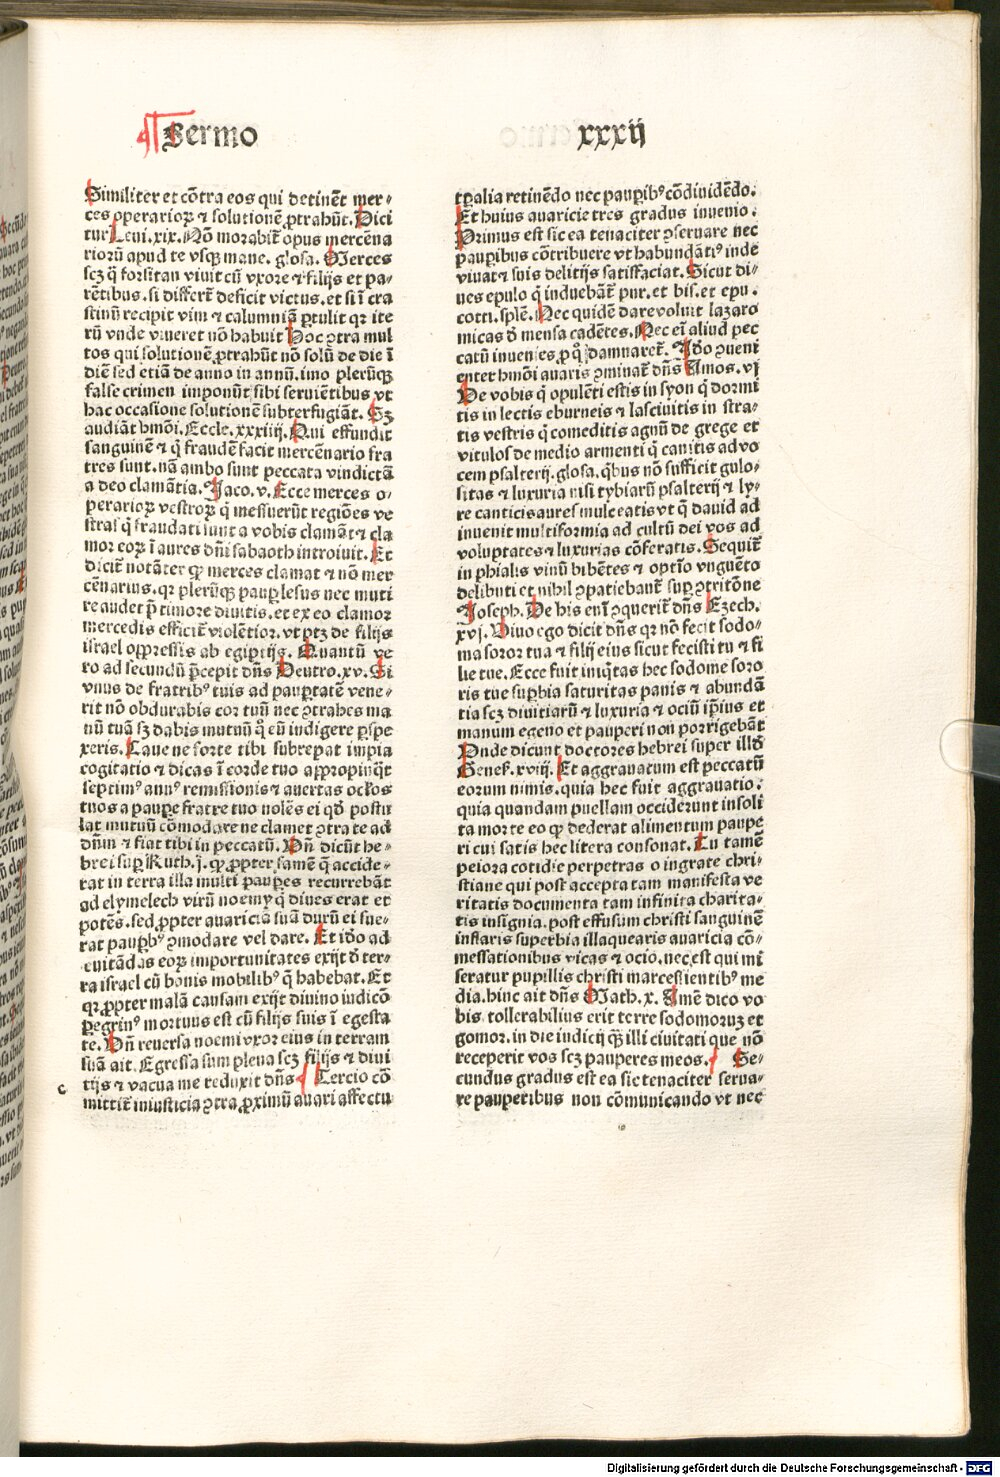 Sermo
xxxij
Similiter et cōtra eos qui detinēt mer⸗
ces operarioꝝ ⁊ solutionē ꝓtrahūt. Dici
tur Leui. xix. Nō morabit̄ opus mercēna
riorū apud te vsqꝫ mane. glosa. Merces
scꝫ q̄ forsitan viuit cū vxore ⁊ filijs et pa⸗
rētibus. si differt̄ deficit victus. et si ī cra
stinū recipit vim ⁊ calumniā ꝑtulit qꝛ ite
rū vnde viueret nō habuit Hoc ꝯtra mul
tos qui solutionē ꝓtrahūt nō solū de die ī
diē sed etiā de anno in annū. imo plerūqꝫ
false crimen imponūt sibi seruiētibus vt
hac occasione solutionē subterfugiāt. Sꝫ
audiāt hmōi. Eccle. xxxiiij. Qui effundit
sanguinē ⁊ q̄ fraudē facit mercēnario fra
tres sunt. nā ambo sunt peccata vindictā
a deo clamātia. Jaco. v. Ecce merces o⸗
perarioꝝ vestroꝝ q̄ messuerūt regiōes ve
stras q̄ fraudati sunt a vobis clamāt ⁊ cla
mor eoꝝ ī aures dn̄i sabaoth introiuit. Et
dicit̄ notāter ꝙ merces clamat ⁊ nō mer
cēnarius. qꝛ plerūqꝫ pauꝑ lesus nec muti
re audet p̄ timore diuitis. et ex eo clamor
mercedis efficit̄ violētior. vt ptꝫ de filijs
israel oppressis ab egiptijs. Quantū ve
ro ad secundū p̄cepit dn̄s Deutro. xv. Si
vnus de fratribꝰ tuis ad pauꝑtatē vene⸗
rit nō obdurabis cor tuū nec ꝯtrahes ma
nū tuā sꝫ dabis mutuū qͦ eū indigere ꝑspe
xeris. Caue ne forte tibi subrepat impia
cogitatio ⁊ dicas ī corde tuo appropinq̄t
septimꝰ annꝰ remissionis ⁊ auertas oclos
tuos a pauꝑe fratre tuo nolēs ei qd̄ postu
lat mutuū cōmodare ne clamet ꝯtra te ad
dn̄m ⁊ fiat tibi in peccatū. Vn̄ dicūt he⸗
brei suꝑ Ruth. j. ꝙ ꝓpter famē q̄ accide⸗
rat in terra illa multi pauꝑes recurrebāt
ad elymelech virū noemy q̄ diues erat et
potēs. sed ꝓpter auariciā suā durū ei fue⸗
rat pauꝑbꝰ ꝯmodare vel dare. Et iđo ad
euitādas eoꝝ importunitates exijt đ ter⸗
ra israel cū bonis mobilibꝰ q̄ habebat. Et
qꝛ ꝓpter malā causam exijt diuino iudicō
ꝑegrinꝰ mortuus est cū filijs suis ī egesta
te. Vn̄ reuersa noemi vxor eius in terram
suā ait. Egressa sum plena scꝫ filijs ⁊ diui
tijs ⁊ vacua me reduxit dn̄s Tercio cō
c
mittit̄ iniusticia ꝯtra ꝓximū auari affectu
tꝑalia retinēdo nec pauꝑibꝰ cōdiuidēdo.
Et huius auaricie tres gradus inuenio.
Primus est sic ea tenaciter ꝯseruare nec
pauꝑibus cōtribuere vt habundātiꝰ inde
viuat ⁊ suis delitijs satisfaciat. Sicut di⸗
ues epulo q̄ induebat̄ pur. et bis. et epu.
cotti. splē. Nec quidē dare voluit lazaro
micas đ mensa cadētes. Nec eī aliud pec
catū inuenies ꝓ qͦ damnaret̄. Jđo ꝯueni
enter hmōi auaris ꝯminat̄ dn̄s Amos. vj
Ve vobis q̄ opulēti estis in syon q̄ dormi
tis in lectis eburneis ⁊ lasciuitis in stra⸗
tis vestris q̄ comeditis agnū de grege et
vitulos de medio armenti q̄ canitis ad vo
cem psalterij. glosa. qbus nō sufficit gulo⸗
sitas ⁊ luxuria nisi tybiarū psalterij ⁊ ly⸗
re canticis aures mulceatis vt q̄ dauid ad
inuenit multiformia ad cultū dei vos ad
voluptates ⁊ luxurias cōferatis. Sequit̄
in phialis vinū bibētes ⁊ optīo vnguēto
delibuti et nihil ꝯpatiebant̄ suꝑ ꝯtritōne
Joseph. De his enī ꝯquerit̄ dn̄s Ezech.
xvj. Viuo ego dicit dn̄s qꝛ nō fecit sodo⸗
ma soror tua ⁊ filij eius sicut fecisti tu ⁊ fi
lie tue. Ecce fuit iniq̄tas hec sodome soro
ris tue suꝑbia saturitas panis ⁊ abundā
tia scꝫ diuitiarū ⁊ luxuria ⁊ ociū ip̄ius et
manum egeno et pauperi non porrigebāt
Vnde dicunt doctores hebrei super illđ
Genes. xviij. Et aggrauatum est peccatū
eorum nimis. quia hec fuit aggrauatio.
quia quandam puellam occiderunt insoli
ta morte eo ꝙ dederat alimentum paupe
ri cui satis hec litera consonat. Tu tamē
peiora cotidie perpetras o ingrate chri⸗
stiane qui post accepta tam manifesta ve
ritatis documenta tam infinita charita⸗
tis insignia. post effusum christi sanguinē
inflaris superbia illaquearis auaricia cō⸗
messationibus vacas ⁊ ocio. nec est qui mi
seratur pupillis christi marcessientibꝰ me
dia. hinc ait dn̄s Math. x. Amē dico vo
bis tollerabilius erit terre sodomoruꝫ et
gomor. in die iudicij qꝫ illi ciuitati que nō
receperit vos scꝫ pauperes meos. Se⸗
cundus gradus est ea sic tenaciter serua⸗
re pauperibus non cōmunicando vt nec
Digitalisierung gefördert durch die Deutsche Forschungsgemeinschaft - DFG